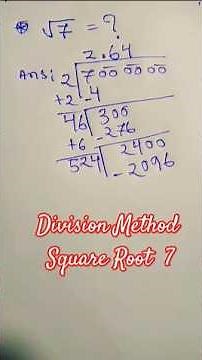 * √7 = ?
2.64
Ans: 2 7 00 00 00
+2 -4
46 300
+6 -276
524 2400
- 2096
Division Method
Square Root 7